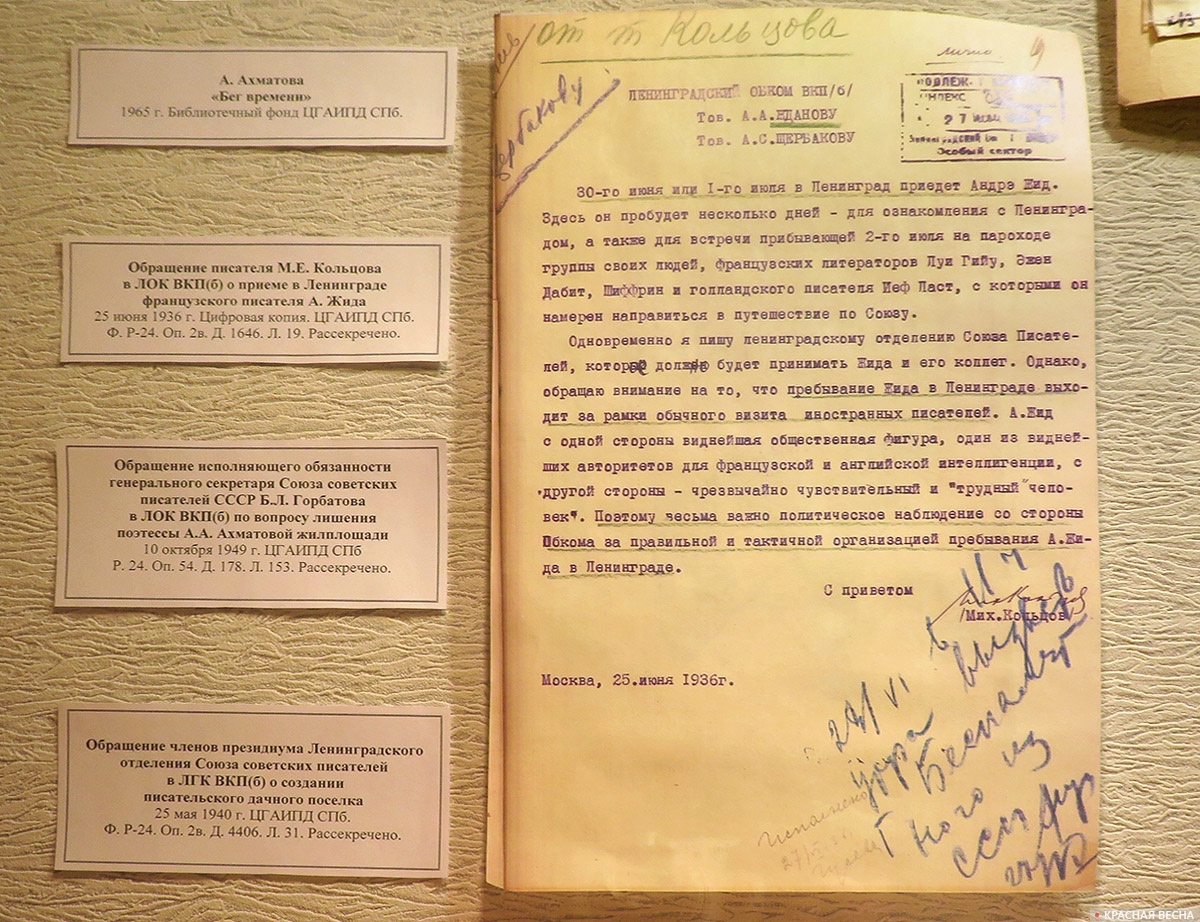 А. Ахматова
«Бег времени»
1965 г. Библиотечный фонд ЦГАИПД СПб.
Обращение писателя М.Е. Кольцова
в ЛОК ВКП(б) о приеме в Ленинграде
французского писателя А. Жида
25 июня 1936 г. Цифровая копия. ЦГАИПД СПб.
Ф. Р-24. Оп. 2в. Д. 1646. Л. 19. Рассекречено.
Обращение исполняющего обязанности
генерального секретаря Союза советских
писателей СССР Б.Л. Горбатова
в ЛОК ВКП(б) по вопросу лишения
поэтессы А.А. Ахматовой жилплощади
10 октября 1949 г. ЦГАИПД СПб
Р. 24. Оп. 54. Д. 178. Л. 153. Рассекречено.
Обращение членов президиума Ленинградского
отделения Союза советских писателей
в ЛГК ВКП(б) о создании
писательского дачного поселка
25 мая 1940 г. ЦГАИПД СПб.
Ф. Р-24. Оп. 2в. Д. 4406. Л. 31. Рассекречено.
от т Кольцова
лично
ЛЕНИНГРАДСКИЙ ОБКОМ ВКП/б/
Тов. А.А.ЖДАНОВУ
Тов. А.С.ЩЕРБАКОВУ
27
Особый сектор
30-го июня или I-го июля в Ленинград приедет Андрэ Жид.
Здесь он пробудет несколько дней - для ознакомления с Ленингра-
дом, а также для встречи прибывающей 2-го июля на пароходе
группы своих людей, французских литераторов Луи Гийу, Эжен
Дабит, Шиффрин и голландского писателя Иеф Ласт, с которыми он
намерен направиться в путешествие по Союзу.
Одновременно я пишу ленинградскому отделению Союза Писате-
лей, которое должно будет принимать Жида и его коллег. Однако,
обращаю внимание на то, что пребывание Жида в Ленинграде выхо-
дит за рамки обычного визита иностранных писателей. А.Жид
с одной стороны виднейшая общественная фигура, один из видней-
ших авторитетов для французской и английской интеллигенции, с
другой стороны - чрезвычайно чувствительный и "трудный чело-
век". Поэтому весьма важно политическое наблюдение со стороны
Обкома за правильной и тактичной организацией пребывания А.Жи-
да в Ленинграде.
С приветом
/Мих.Кольцов/
Москва, 25.июня 1936г.
Исполнено
КРАСНАЯ ВЕСНА